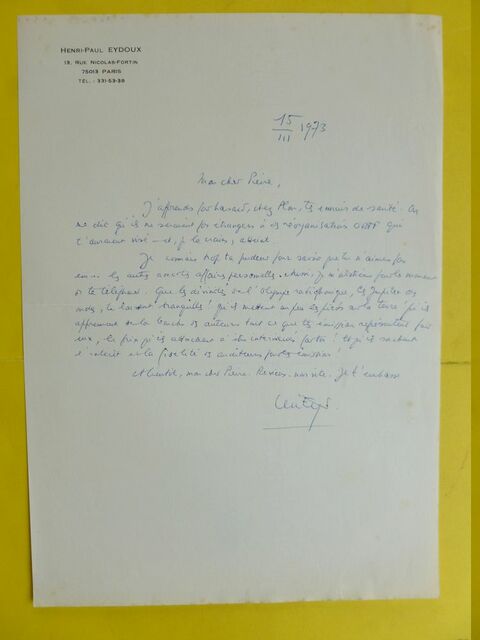 HENRI-PAUL EYDOUX
13, RUE NICOLAS-FORTIN
75013 PARIS
TÉL. : 331-53-38
15
III 1973
Mon cher Pierre,
J'apprends par hasard, chez Plon, tes ennuis de santé. On
me dit qu'ils ne seraient pas étrangers à ces réorganisations ORTF qui
t'auraient visé - et, je le crains, atteint.
Je connais trop ta pudeur pour savoir que tu n'aimes pas
les autres affaires personnelles. Aussi, je m'abstiens pour le moment
de te téléphoner. Que les divinités de l'Olympe radiophonique, les Jupiter des
ondes, te laissent tranquille ! Qu'ils mettent un peu les pieds sur la terre ! Qu'ils
apprennent de la bouche des auteurs tout ce que tes émissions représentent pour
eux, le prix qu'ils attachent à être interviewés par toi ! Et qu'ils sachent
l'intérêt et la fidélité des auditeurs pour tes émissions !
A bientôt, mon cher Pierre. Reviens-nous vite. Je t'embrasse